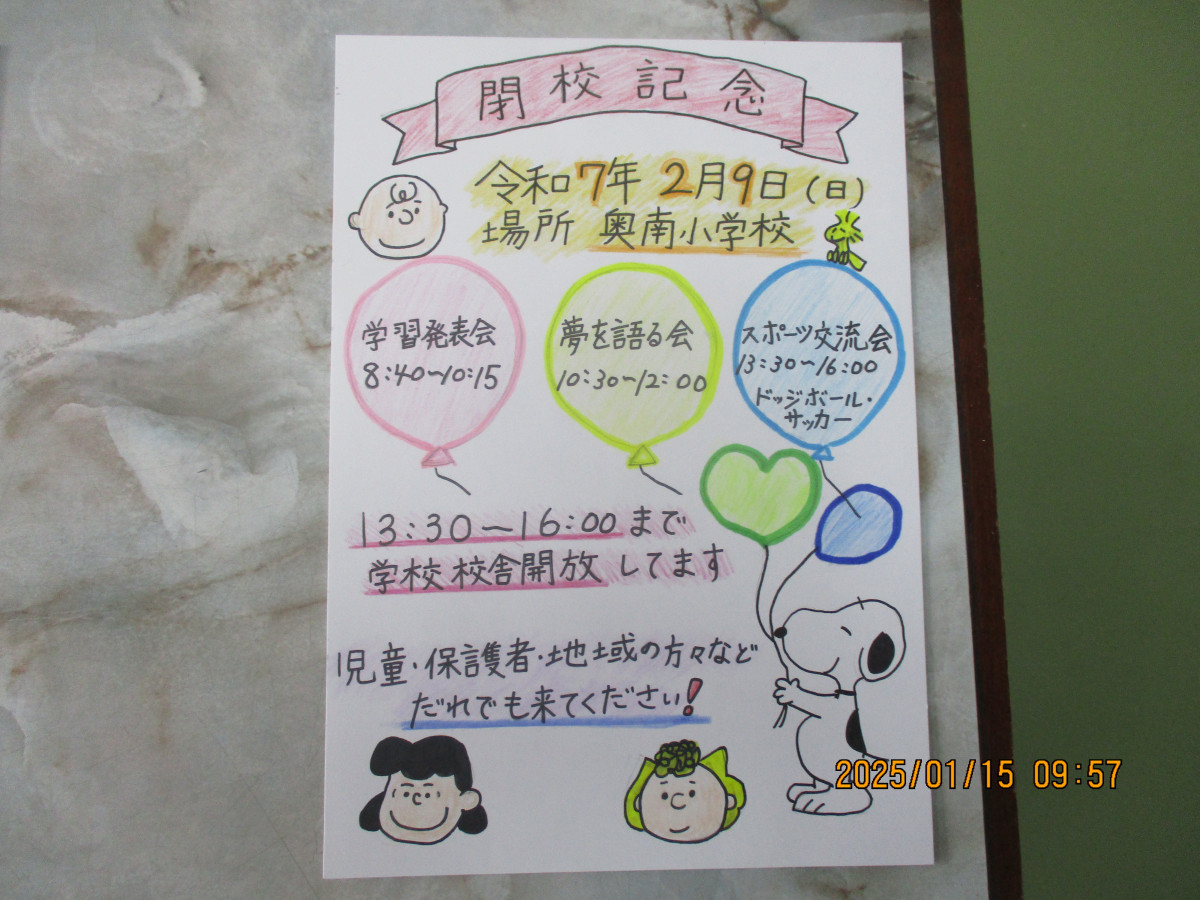 閉校記念
令和7年 2月9日(日)
場所 奥南小学校
学習発表会
8:40〜10:15
夢を語る会
10:30〜12:00
スポーツ交流会
13:30〜16:00
ドッジボール・
サッカー
13:30〜16:00まで
学校校舎開放してます
児童・保護者・地域の方々など
だれでも来てください!
2025/01/15 09:57